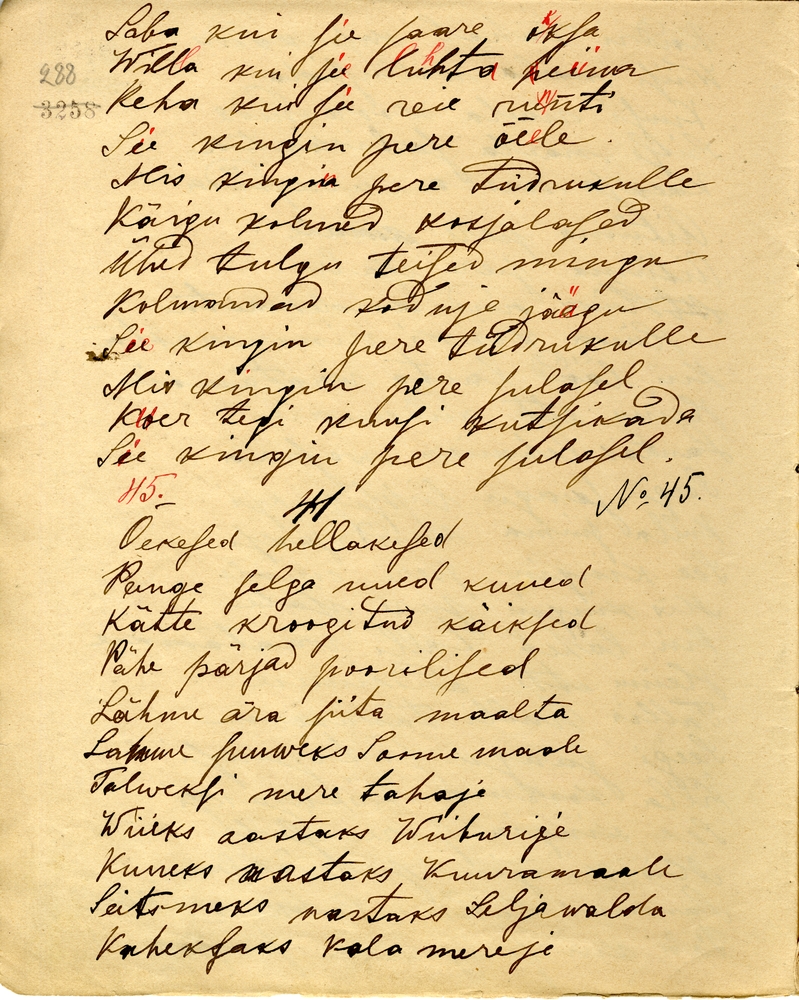 Saba kui sie saare oksa
Willa kui sie luhta heina
288
Keha kui sie reie
3258
Sie kingin pere õele.
Mis kingin pere tüdrukulle
Käigu kolmed kosjalased
Ühed tulgu teised mingu
Kolmandad koduje jäägu
Sie kingin pere tüdrukulle
Mis kingin pere sulasel
Koer tegi kuusi kutsikada
Sie kingin pere sulasel.
45.
44
No 45.
Õekesed hellakesed
Pange selga uued kuued
Kätte kroogitud käiksed
Pähe pärjad poorilised
Lähme ära siita maalta
Lähme suuweks Soome maale
Talweksi mere tahaje
Wiieks aastaks Wiiburije
Kuueks aastaks Kuuramaale
Seitsmeks aastaks Seljawalda
Kaheksaks Kala mereje